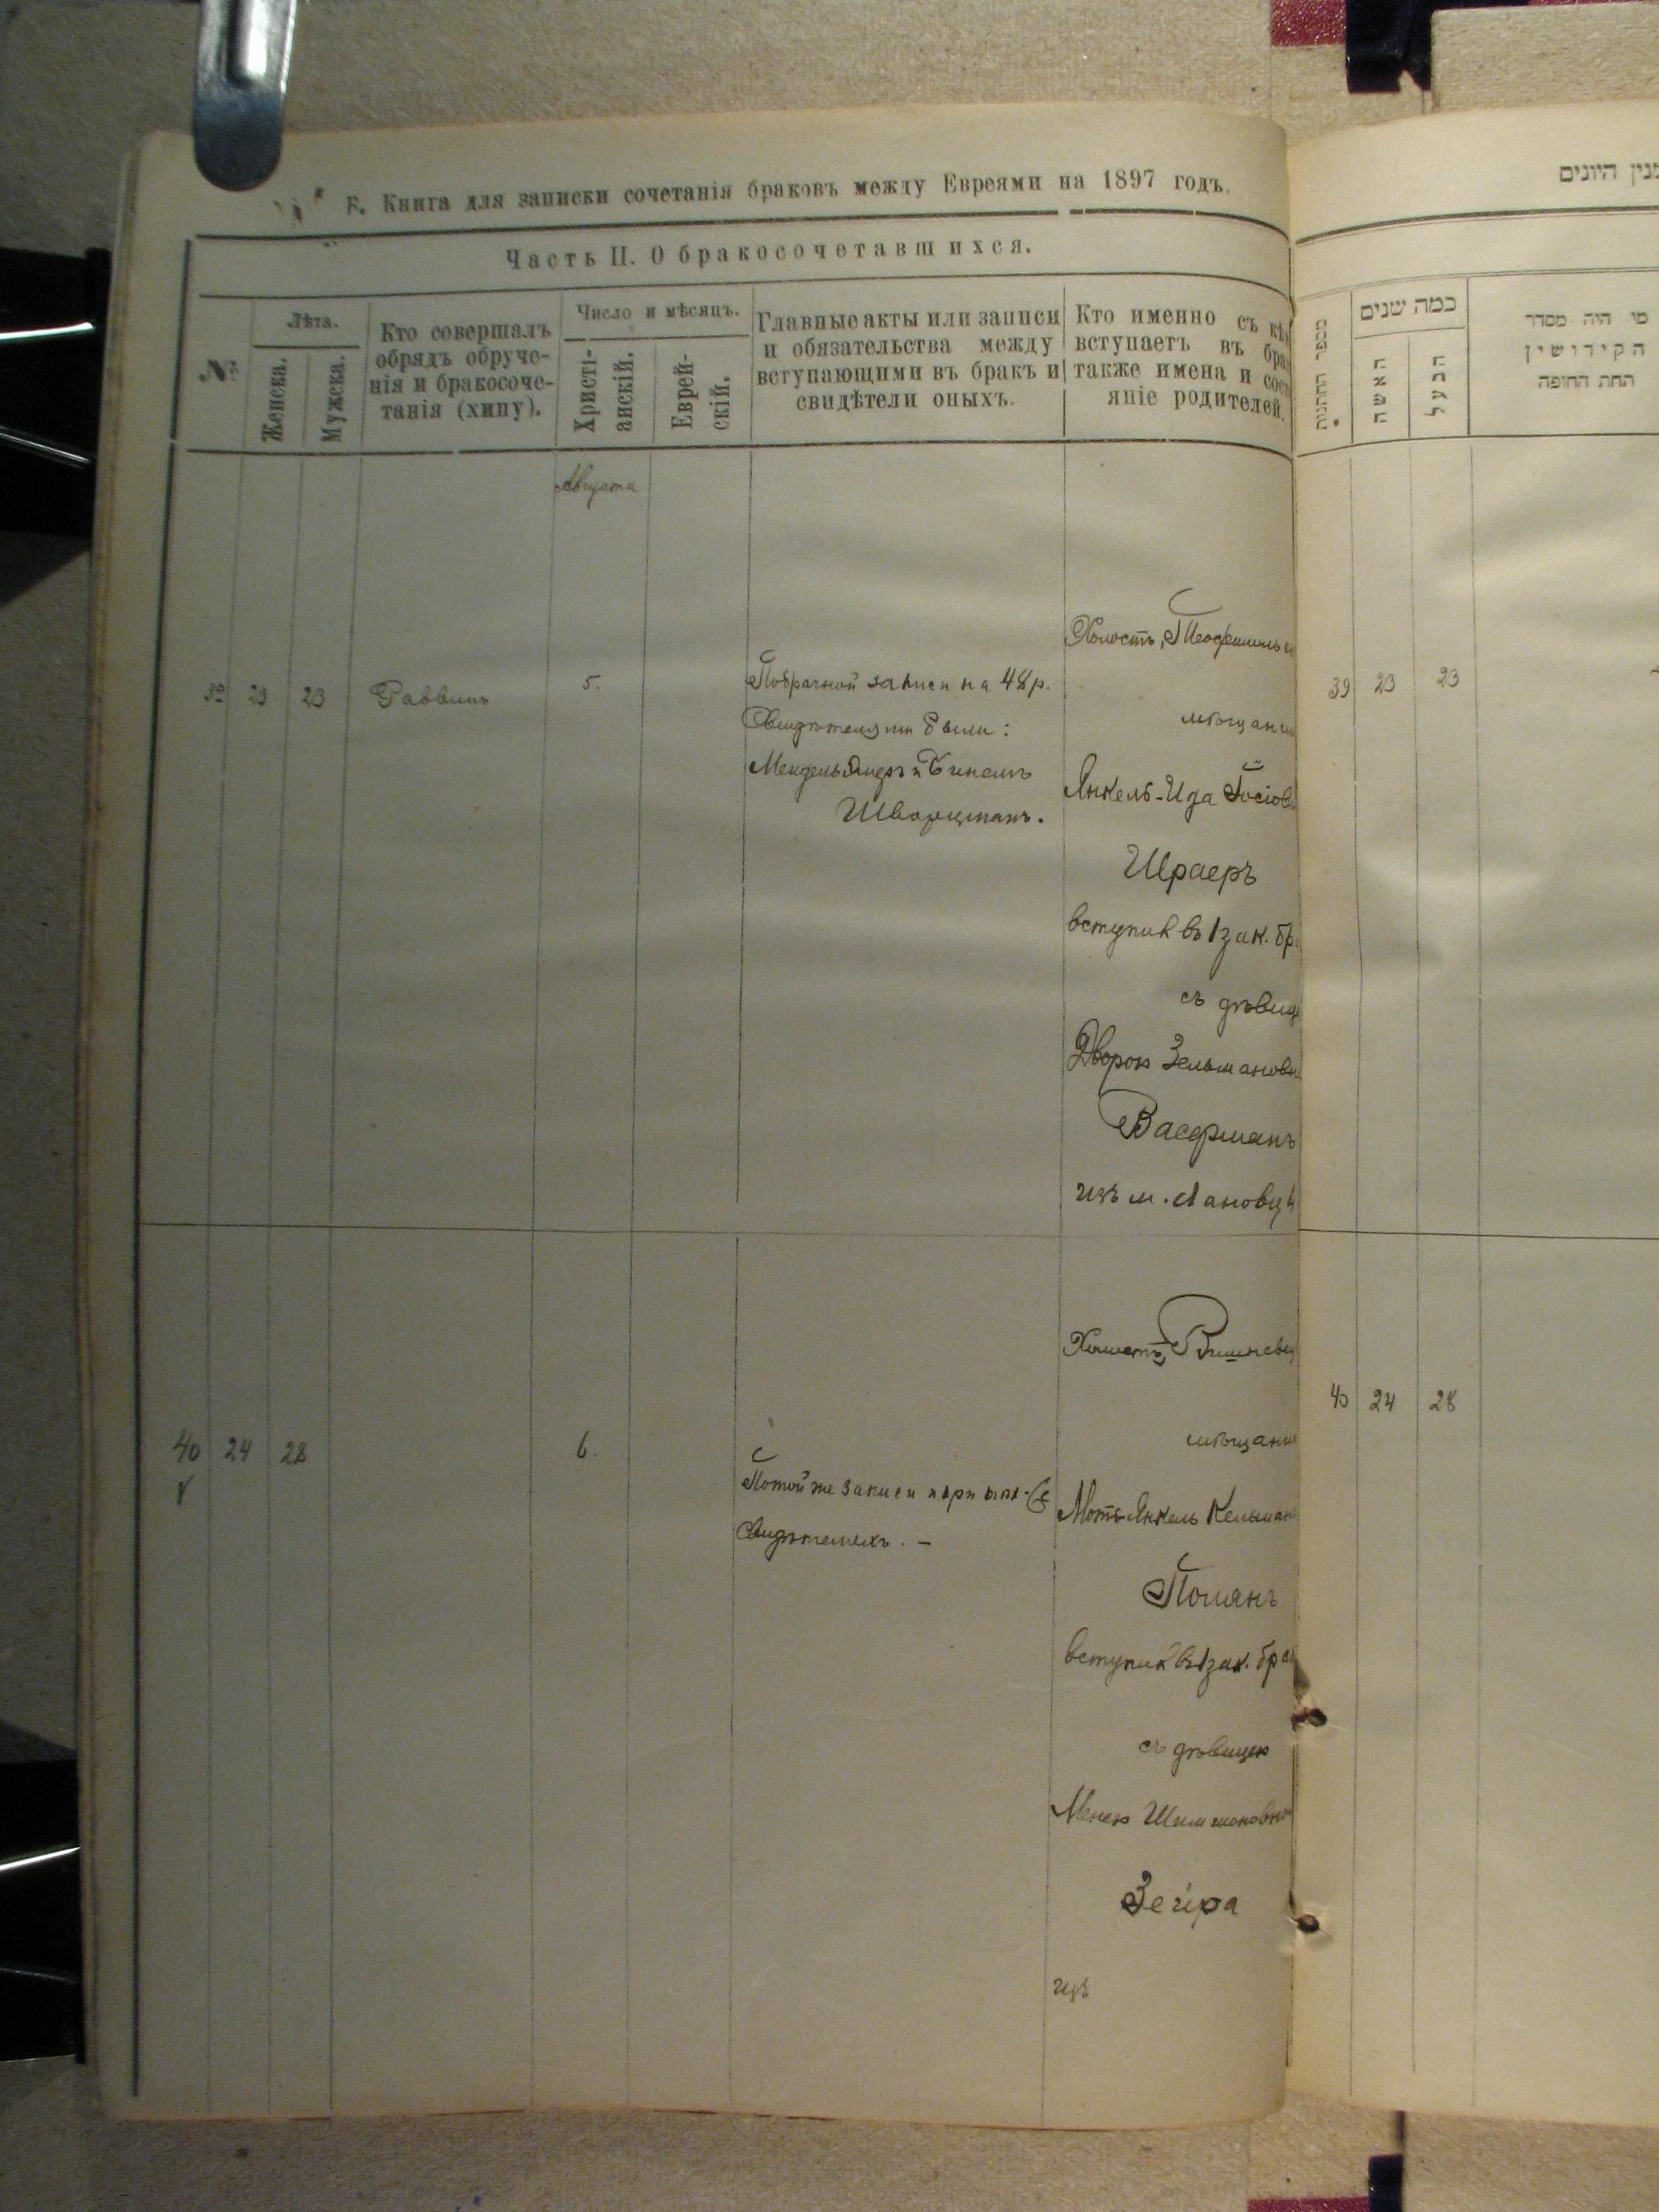 Книга для записки сочетанія браковъ между Евреями на 1897 годъ.
Часть II. О бракосочетавшихся.
№
Лѣта.
Женска.
Мужска.
Кто совершалъ
обрядъ обруче-
нія и бракосоче-
танія (хипу).
Число и мѣсяцъ.
Христі-
анскій.
Еврей-
скій.
Главные акты или записи
и обязательства между
вступающими въ бракъ и
свидѣтели оныхъ.
Кто именно съ кѣ
вступаетъ въ бра
также имена и сос
яніе родителей.
Августа
39 23 23 Раввинъ 5.
По брачной записи на 48 р.
Свидѣтелями были:
Мендель и
Шварцманъ.
Холостъ,
мѣщани
Янкель-Ида
Шраеръ
вступил въ 1 зак. бр
съ дѣвиц
Дворою Зельмановн
Васерманъ
изъ м. Лановц
40 24 28 6.
По той же записи и при тѣх-же
Свидѣтеляхъ. -
Холостъ, Вишневец
мѣщани
Моть-Янкель Кельман
Полянъ
вступил въ 1 зак. бра
съ дѣвицею
Менею Шимшоновно
Зегира
изъ
מנין היונים
מספר החתונות
כמה שנים
האשה
הבעל
מי היה מסדר
הקידושין
תחת החופה
39 23 23
40 24 28